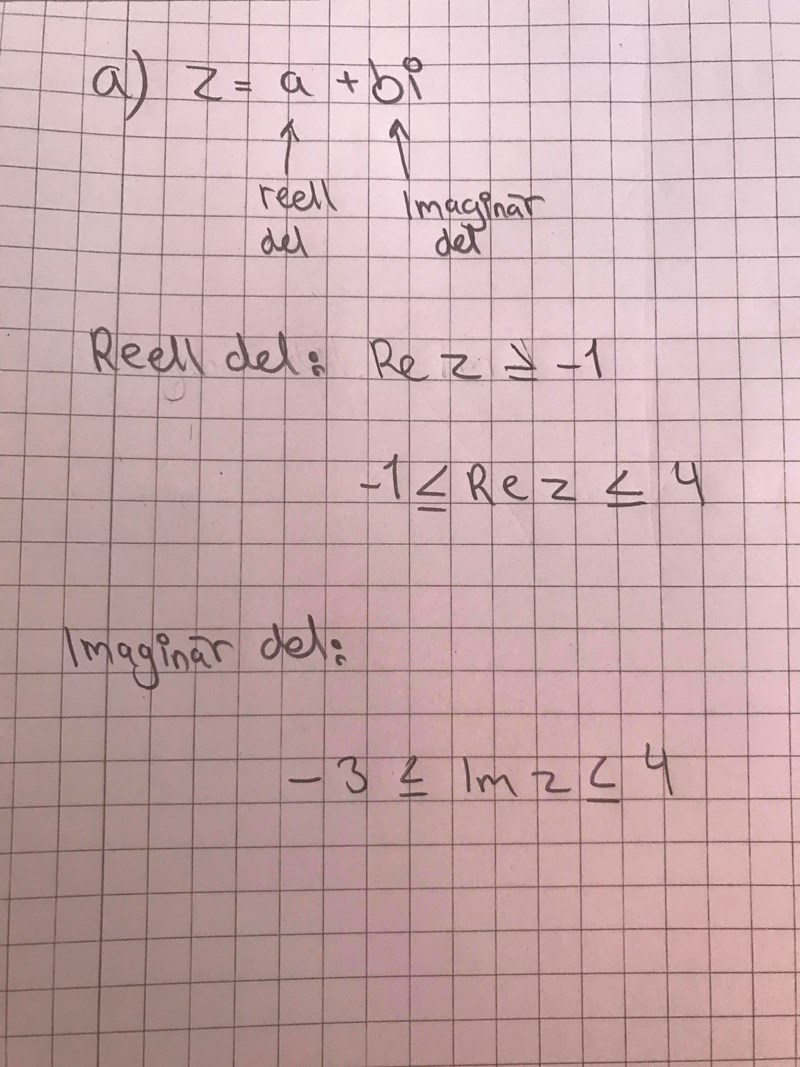 a) z = a + bi
↑ ↑
reell Imaginär
del del
Reell del: Re z ≥ -1
-1 ≤ Re z ≤ 4
Imaginär del:
- 3 ≤ Im z ≤ 4